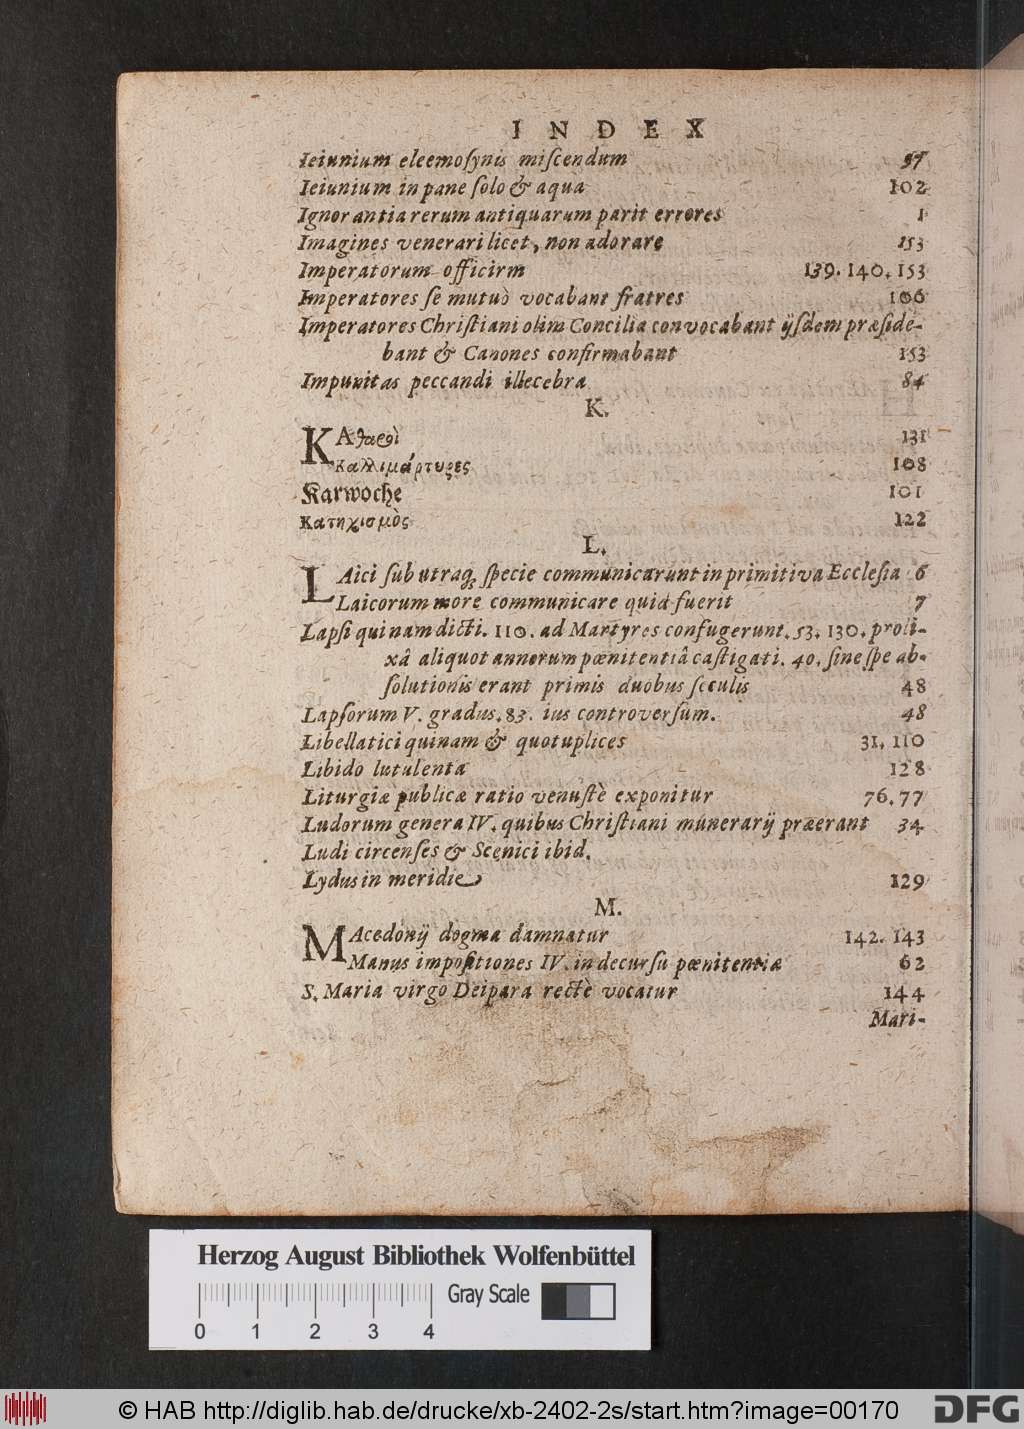 INDEX
Ieiunium eleemoſynis miſcendum 57
Ieiunium in pane ſolo & aqua 102
Ignorantia rerum antiquarum parit errores 1
Imagines venerari licet, non adorare 153
Imperatorum officirm 139. 140. 153
Imperatores ſe mutuò vocabant fratres 106
Imperatores Chriſtiani olim Concilia convocabant ijſdem præſide-
bant & Canones confirmabant 153
Impunitas peccandi illecebra 84
K.
KAθαροὶ 131
Καλλιμάρτυρες 108
Karwoche 101
Κατηχισμὸς 122
L.
LAici ſub utraq; ſpecie communicarunt in primitiva Eccleſia 6
Laicorum more communicare quid fuerit 7
Lapſi quinam dicti. 110. ad Martyres confugerunt. 53. 130. proli-
xâ aliquot annorum pœnitentiâ caſtigati. 40. ſine ſpe ab-
ſolutionis erant primis duobus ſeculis 48
Lapſorum V. gradus. 83. ius controverſum. 48
Libellatici quinam & quotuplices 31. 110
Libido lutulenta 128
Liturgiæ publicæ ratio venuſtè exponitur 76. 77
Ludorum genera IV. quibus Chriſtiani munerarij præerant 34
Ludi circenſes & Scenici ibid.
Lydus in meridie 129
M.
MAcedonij dogma damnatur 142. 143
Manus impoſitiones IV. in decurſu pœnitentiæ 62
S. Maria virgo Deipara rectè vocatur 144
Mari-
Herzog August Bibliothek Wolfenbüttel
Gray Scale
0 1 2 3 4
© HAB http://diglib.hab.de/drucke/xb-2402-2s/start.htm?image=00170
DFG